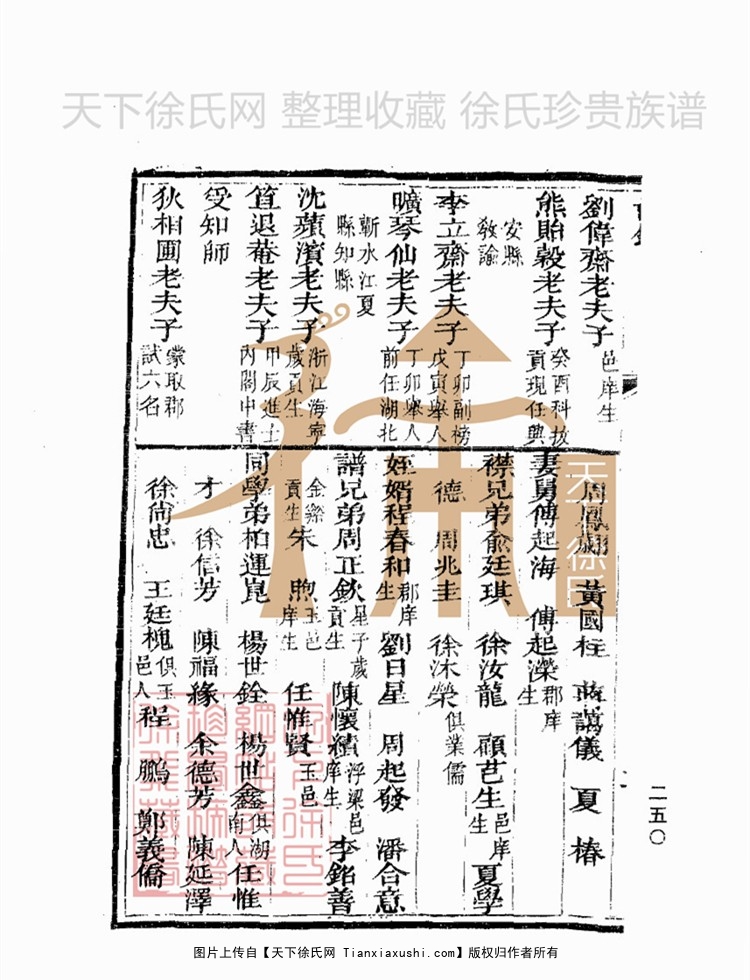 天下徐氏网 整理收藏 徐氏珍贵族谱
劉偉齋老夫子邑庠生
熊貽穀老夫子癸酉科拔貢現任興
安縣教諭
李立齋老夫子丁卯副榜戊寅舉人
曠琴仙老夫子丁卯舉人前任湖北
蘄水江夏縣知縣
沈蘋濱老夫子浙江海寧歲貢生
笪退菴老夫子甲辰進士內閣中書
受知師
狄相圃老夫子蒙取郡試六名
周鳳翽 黃國柱 蔣講儀 夏椿
妻舅傅起海 傅起濼郡庠生
襟兄弟俞廷琪 徐汝龍 顧芑生邑庠生 夏學
德 周兆圭 徐沐榮俱業儒
姪婿程春和郡庠生 劉日星 周起發 潘合意
譜兄弟周正欽星子歲貢生 陳懷續浮梁邑庠生 李銘善
金谿貢生朱煦玉邑庠生 任惟賢玉邑
同學弟柏運崑 楊世銓 楊世鑫俱湖南人任惟
才 徐信芳 陳福緣 余德芳 陳延澤
徐尚忠 王廷槐俱玉邑人程鵬 鄭義僑
二五〇
天下徐氏
图片上传自【天下徐氏网 Tianxiaxushi.com】版权归作者所有